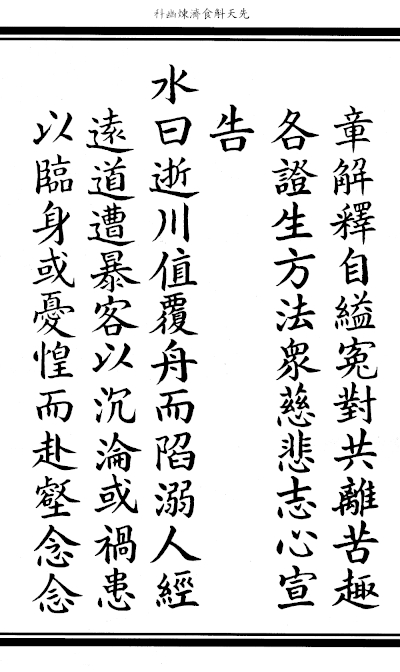 先天斛食濟煉幽科
章解釋自縊寃對共離苦趣
各證生方法衆慈悲志心宣
告
水曰逝川值覆舟而陷溺人經
遠道遭暴客以沉淪或禍患
以臨身或憂惶而赴壑念念